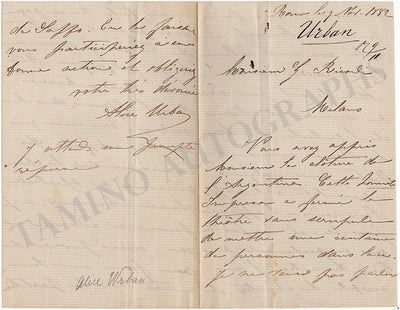 de Saffo. En le faisant
vous participeriez à une
bonne action et obligerez
votre très dévouée
Alice Urban
J'attends une prompte
réponse
Alice Urban
Rome le 9 Nov. 1882
Urban
Monsieur G. Ricordi
Milano
Vous avez appris
Monsieur la clôture de
l'Argentina. Cette
Impresa a fermé le
théâtre sans scrupule
de mettre une centaine
de personnes dans
je ne veux pas parler
TAMINO AUTOGRAPHS